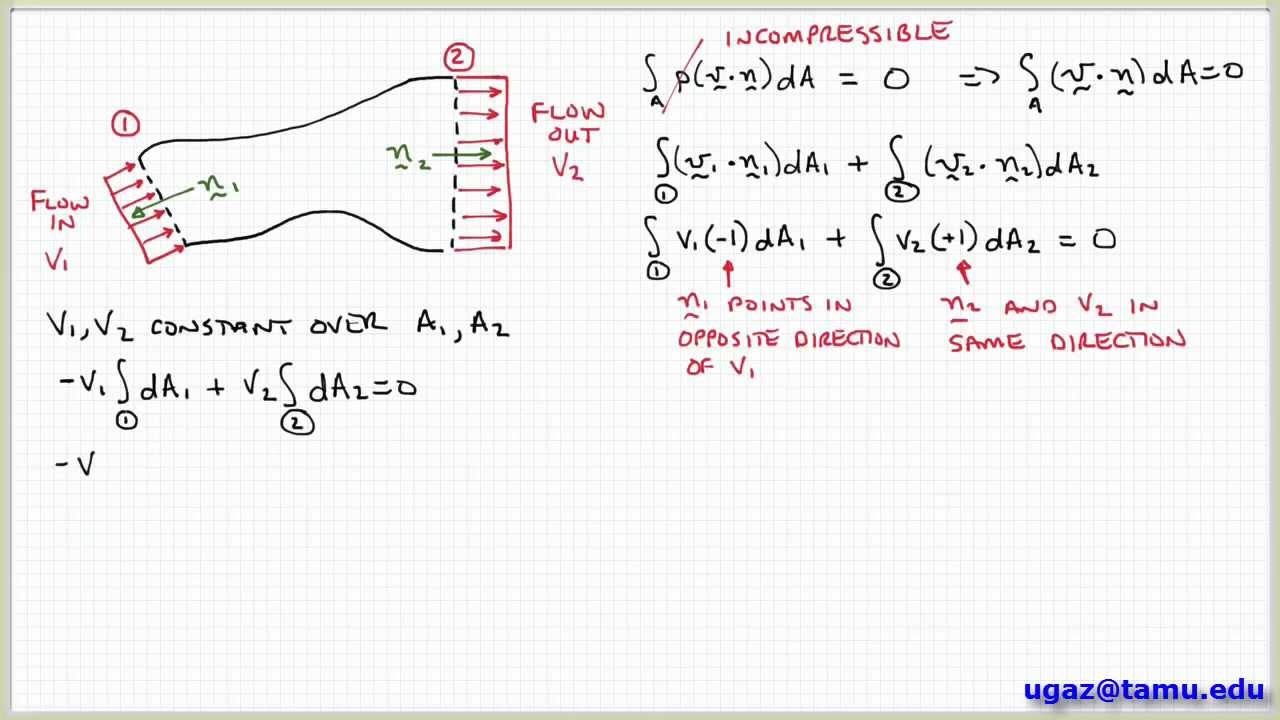 ①
②
FLOW
IN
V₁
n₁
n₂
FLOW
OUT
V₂
INCOMPRESSIBLE
∫_A ρ(v·n)dA = 0 => ∫_A (v·n)dA=0
∫_① (v₁·n₁)dA₁ + ∫_② (v₂·n₂)dA₂
∫_① V₁(-1)dA₁ + ∫_② V₂(+1)dA₂ = 0
n₁ POINTS IN
OPPOSITE DIRECTION
OF V₁
n₂ AND V₂ IN
SAME DIRECTION
V₁,V₂ CONSTANT OVER A₁,A₂
-V₁∫_① dA₁ + V₂∫_② dA₂=0
-V
ugaz@tamu.edu